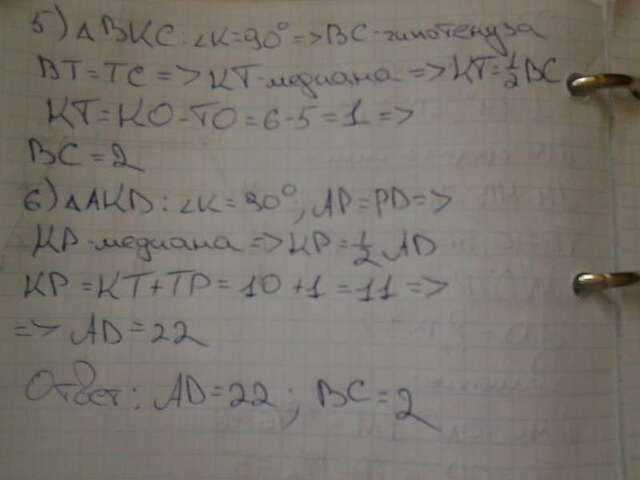 5) △BKC: ∠K=90° => BC-гипотенуза
BT=TC => KT-медиана => KT=1/2 BC
KT=KO-TO=6-5=1 =>
BC=2
6) △AKD: ∠K=90°, AP=PD=>
KP-медиана => KP=1/2 AD
KP=KT+TP=10+1=11 =>
=> AD=22
Ответ: AD=22; BC=2